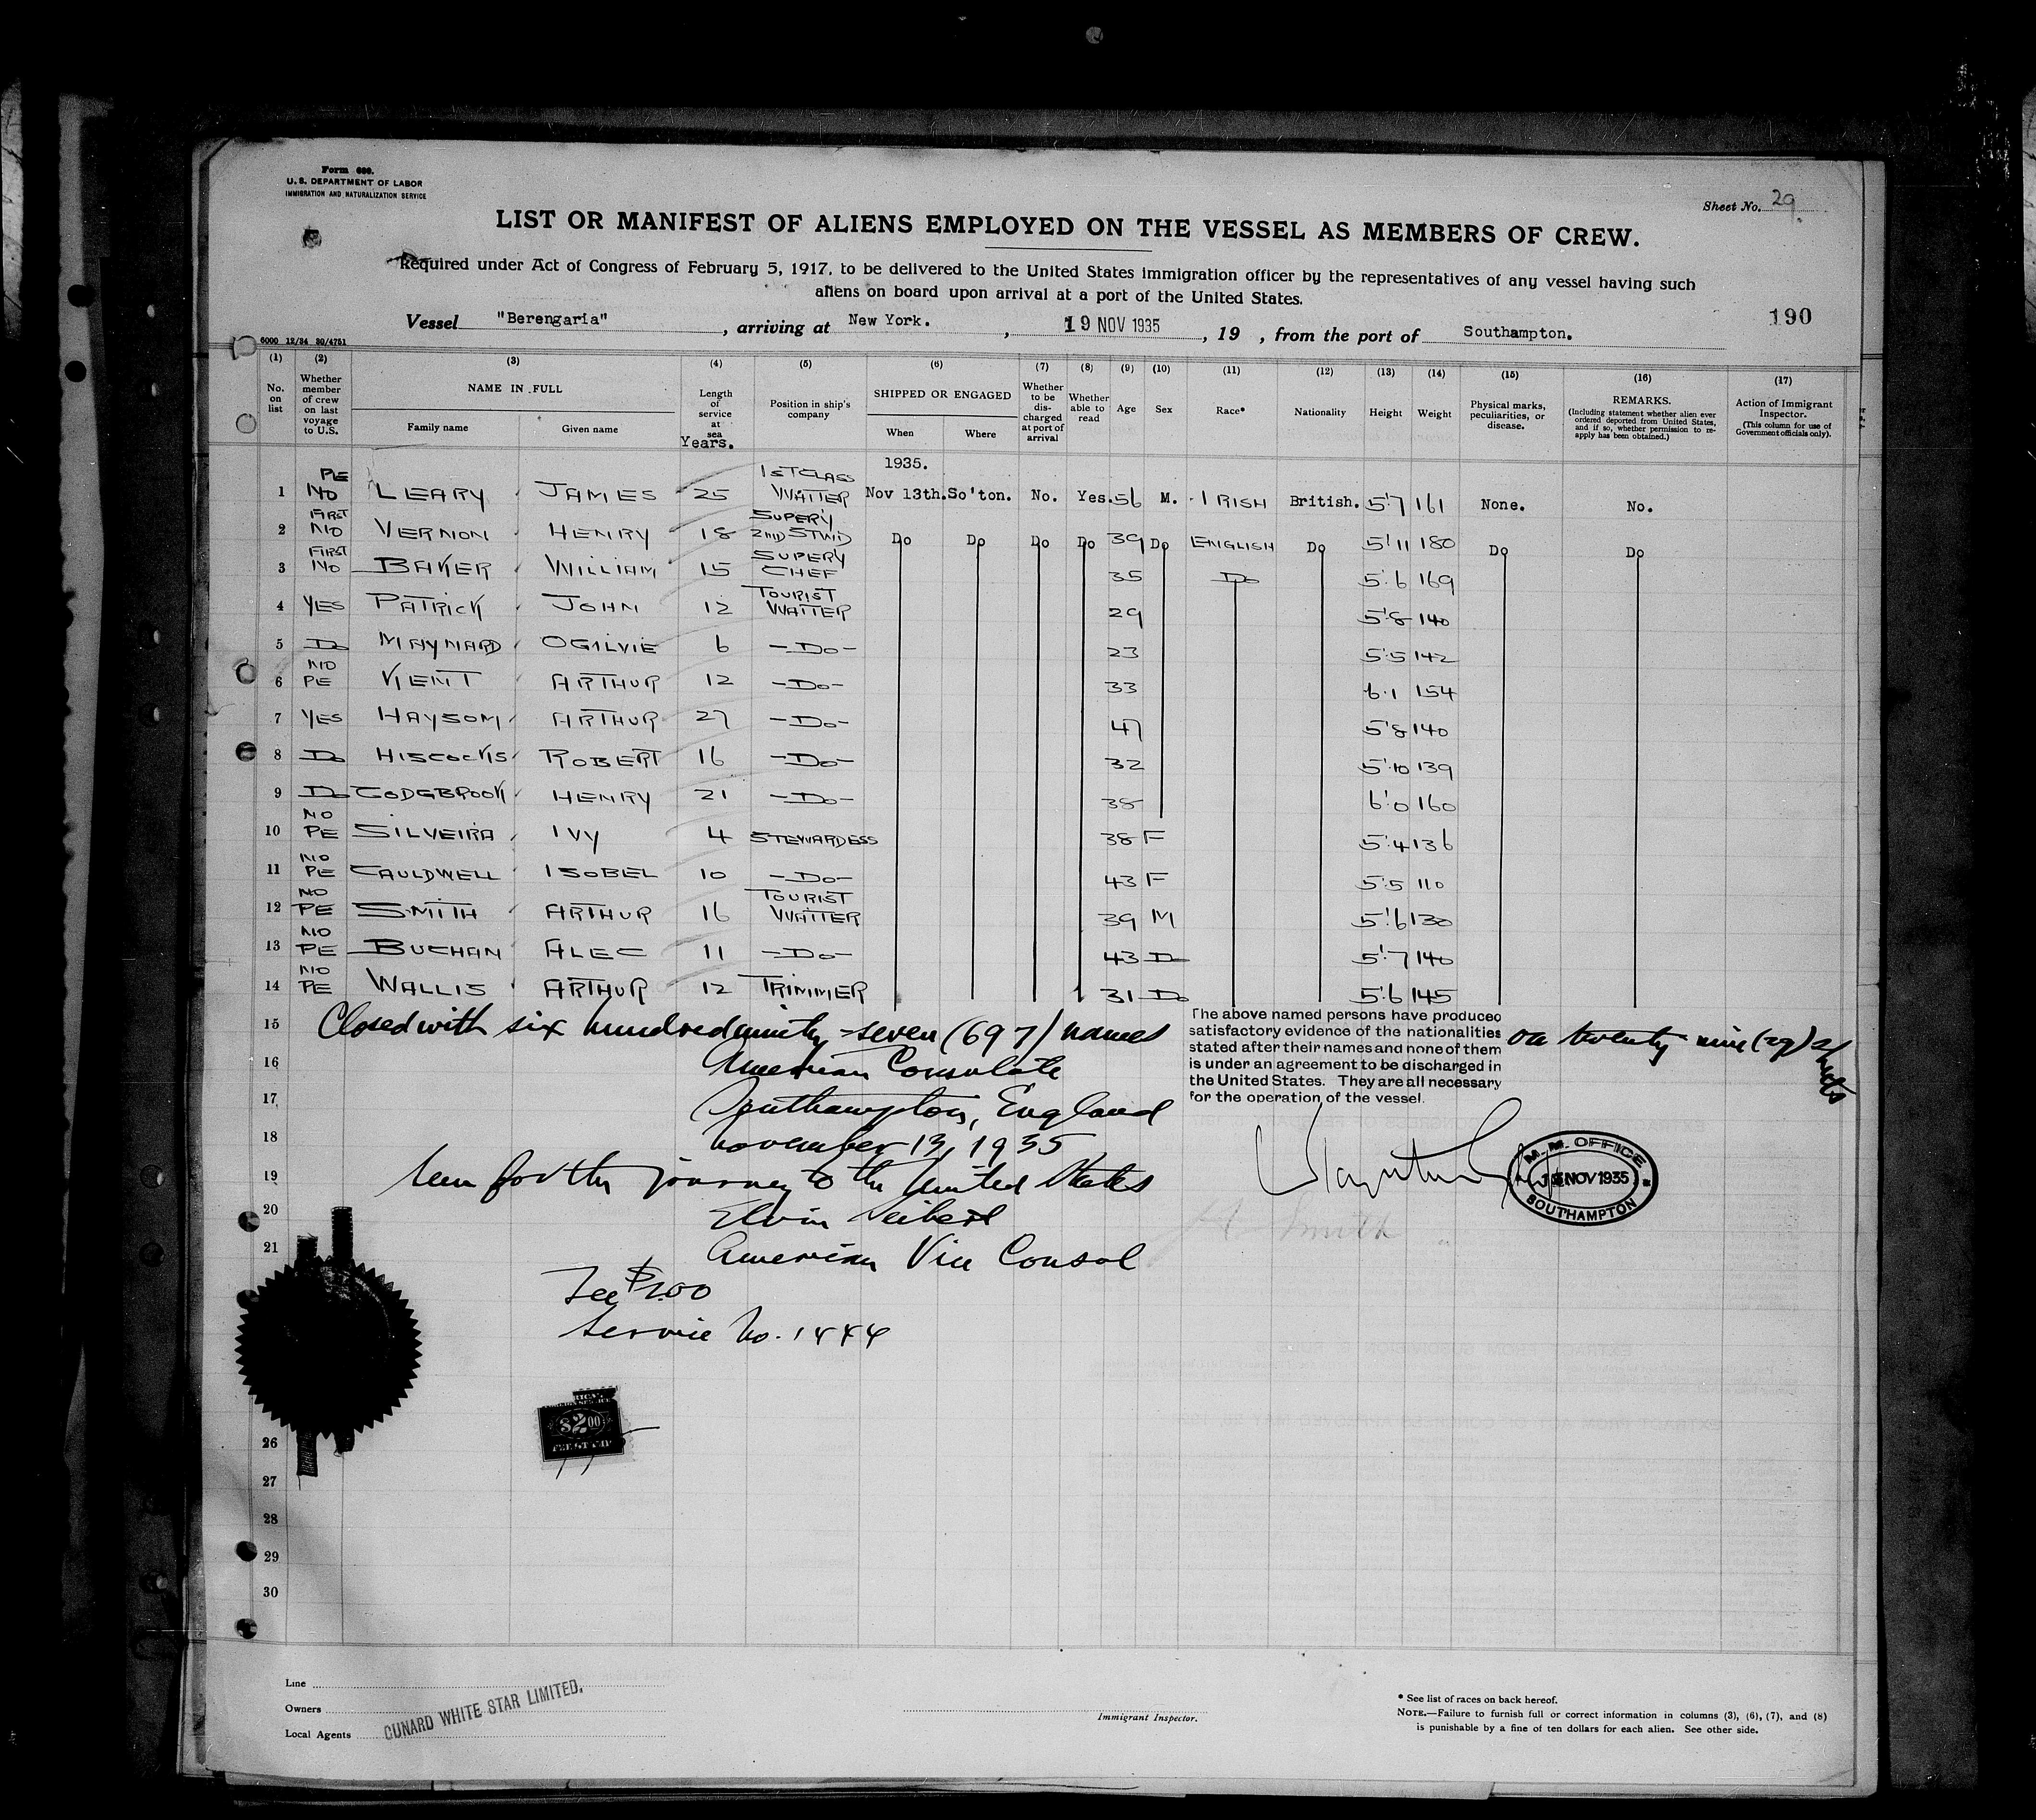 Form 680.
U. S. DEPARTMENT OF LABOR
IMMIGRATION AND NATURALIZATION SERVICE
Sheet No. 29
LIST OR MANIFEST OF ALIENS EMPLOYED ON THE VESSEL AS MEMBERS OF CREW.
Required under Act of Congress of February 5, 1917, to be delivered to the United States immigration officer by the representatives of any vessel having such
aliens on board upon arrival at a port of the United States.
190
Vessel "Berengaria", arriving at New York., 19 NOV 1935, 19 , from the port of Southampton.
6000 12/34 30/4751
(1) (2) (3) (4) (5) (6) (7) (8) (9) (10) (11) (12) (13) (14) (15) (16) (17)
No. on list
Whether member of crew on last voyage to U.S.
NAME IN FULL
Family name
Given name
Length of service at sea
Years.
Position in ship's company
SHIPPED OR ENGAGED
When
Where
Whether to be discharged at port of arrival
Whether able to read
Age
Sex
Race*
Nationality
Height
Weight
Physical marks, peculiarities, or disease.
REMARKS.
(Including statement whether alien ever ordered deported from United States, and if so, whether permission to reapply has been obtained.)
Action of Immigrant Inspector.
(This column for use of Government officials only).
1935.
1 PE NO LEARY JAMES 25 1ST CLASS WAITER Nov 13th. So'ton. No. Yes. 56 M. IRISH British. 5'7 161 None. No.
2 FIRST NO VERNON HENRY 18 SUPERY 2ND STWD Do Do Do Do 39 Do ENGLISH Do 5'11 180 Do Do
3 FIRST NO BAKER WILLIAM 15 SUPERY CHEF 35 Do 5'6 169
4 YES PATRICK JOHN 12 TOURIST WAITER 29 5'8 140
5 Do MAYNARD OGILVIE 6 -Do- 23 5'5 142
6 NO PE KENT ARTHUR 12 -Do- 33 6'1 154
7 YES HAYSOM ARTHUR 27 -Do- 47 5'8 140
8 Do HISCOCKS ROBERT 16 -Do- 32 5'10 139
9 Do CODGBROOK HENRY 21 -Do- 38 6'0 160
10 NO PE SILVEIRA IVY 4 STEWARDESS 38 F 5'4 136
11 NO PE CAULDWELL ISOBEL 10 -Do- 43 F 5'5 110
12 NO PE SMITH ARTHUR 16 TOURIST WAITER 39 M 5'6 130
13 NO PE BUCHAN ALEC 11 -Do- 43 Do 5'7 140
14 NO PE WALLIS ARTHUR 12 TRIMMER 31 Do 5'6 145
15 Closed with six hundred ninety-seven (697) names on twenty nine (29) sheets
The above named persons have produced
satisfactory evidence of the nationalities
stated after their names and none of them
is under an agreement to be discharged in
the United States. They are all necessary
for the operation of the vessel.
16 American Consulate
17 Southampton, England
18 November 13, 1935
19 Seen for the journey to the United States
20 Elvin Seibert
21 American Vice Consul
M. M. OFFICE
NOV 1935
SOUTHAMPTON
Smith
Fee $2.00
Service No. 1444
$2.00
FEE STAMP
26
27
28
29
30
Line
Owners
Local Agents
CUNARD WHITE STAR LIMITED.
Immigrant Inspector.
* See list of races on back hereof.
NOTE.—Failure to furnish full or correct information in columns (3), (6), (7), and (8)
is punishable by a fine of ten dollars for each alien. See other side.